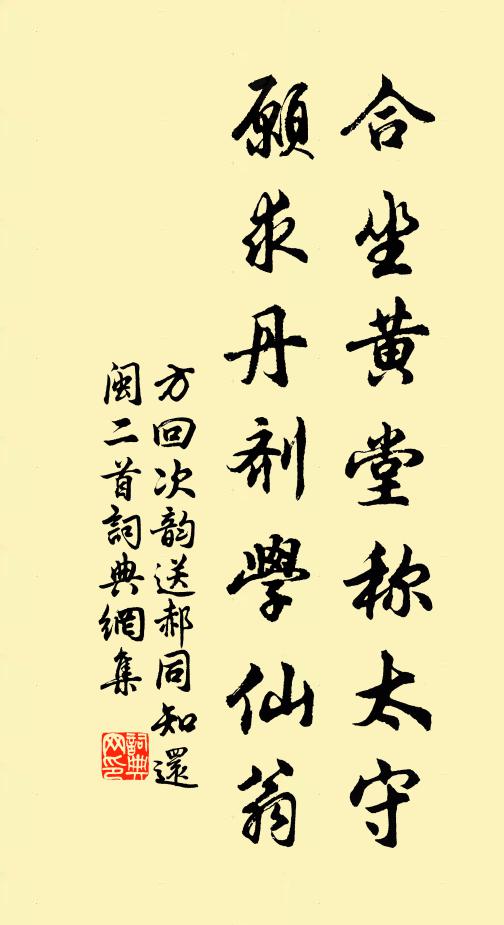 合坐黄堂称太守
願求丹剂學仙翁
方回次韵送郝同知還
闽二首詞典網集
詞典网印